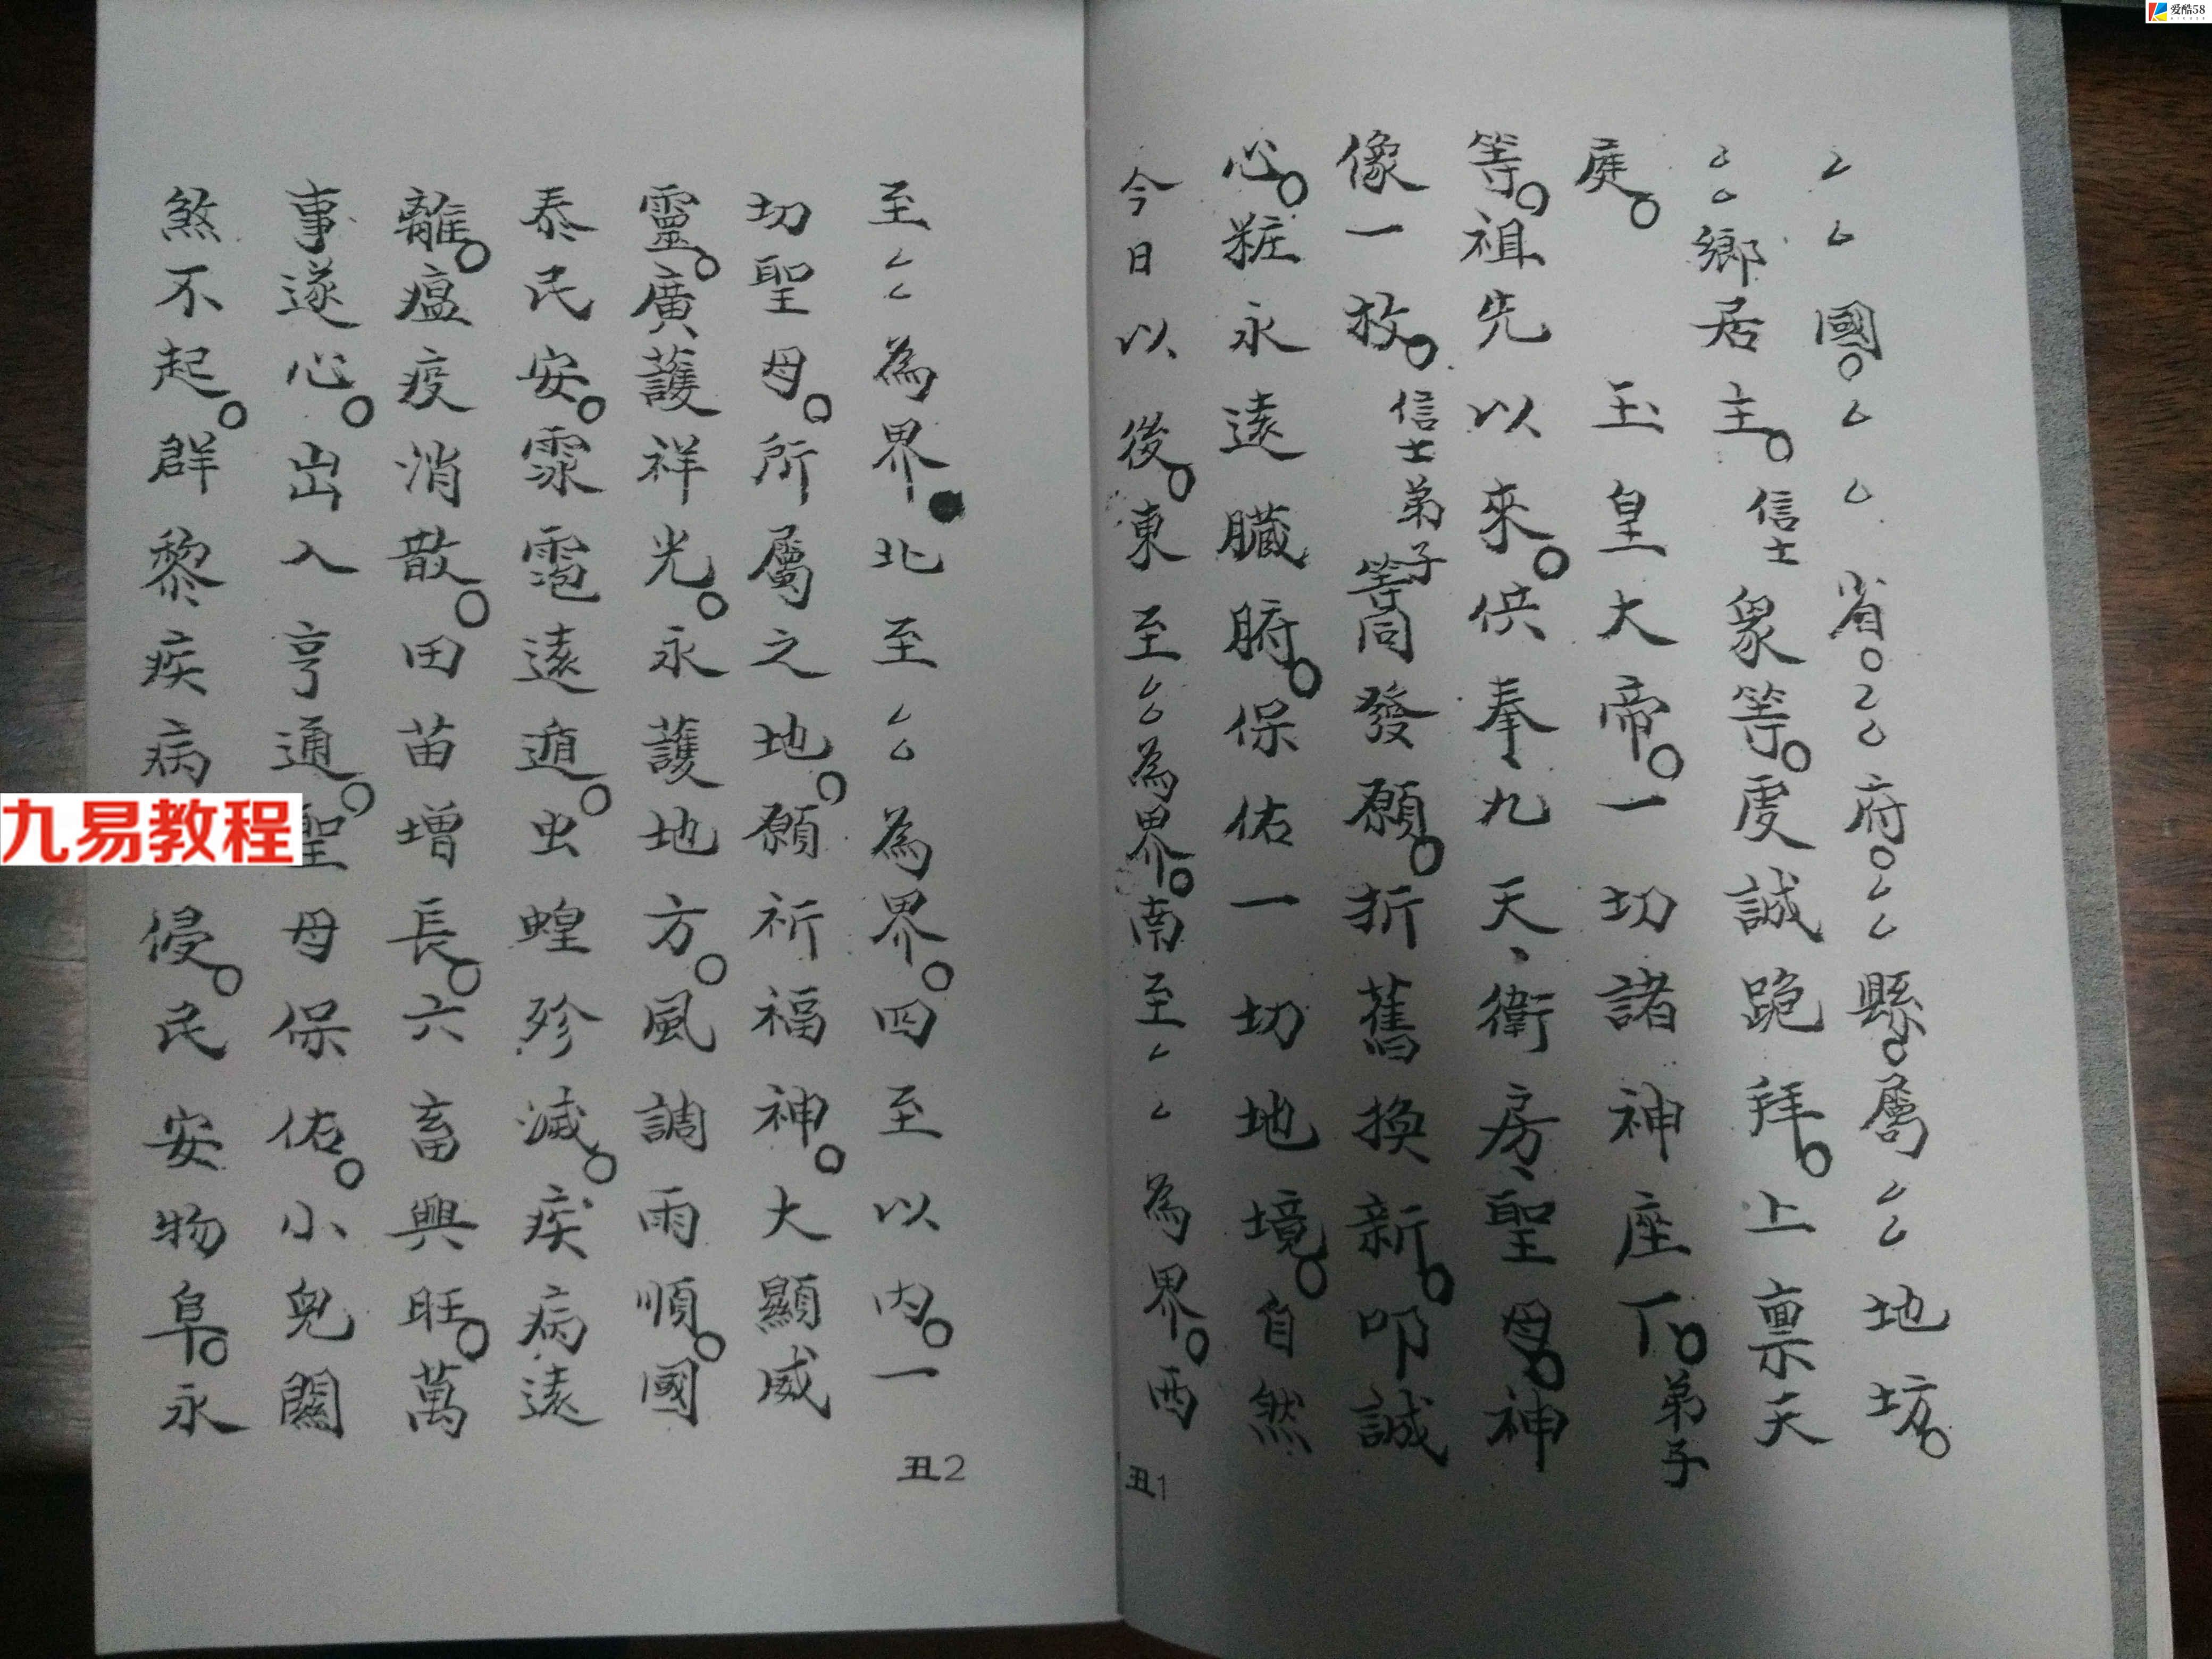 厶厶國。厶厶省。厶厶府。厶厶縣。屬厶厶地坊。
厶厶鄉居主。信士眾等。虔誠跪拜。上禀天
庭。玉皇大帝。一切諸神座下。弟子
等。祖先以來。供奉、九天、衛房、聖母。神
像一枚。信士弟子等同發願。折舊換新。叩誠
心。粧永遠臟腑。保佑一切地境。自然
今日以後。東至厶厶為界。南至厶厶為界。西
丑1
至厶厶為界。北至厶厶為界。四至以內。一
切聖母。所屬之地。願祈福神。大顯威
靈。廣護祥光。永護地方。風調雨順。國
泰民安。霖雹遠遁。虫蝗殄滅。疾病遠
離。瘟疫消散。田苗增長。六畜興旺。萬
事遂心。出入亨通。聖母保佑。小兒關
煞不起。群黎疾病 侵。民安物阜。永
丑2
九易教程
爱酷58